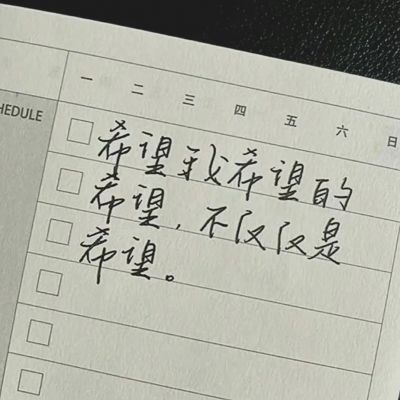 一 二 三 四 五 六 日
HEDULE
希望我希望的
希望,不仅仅是
希望。